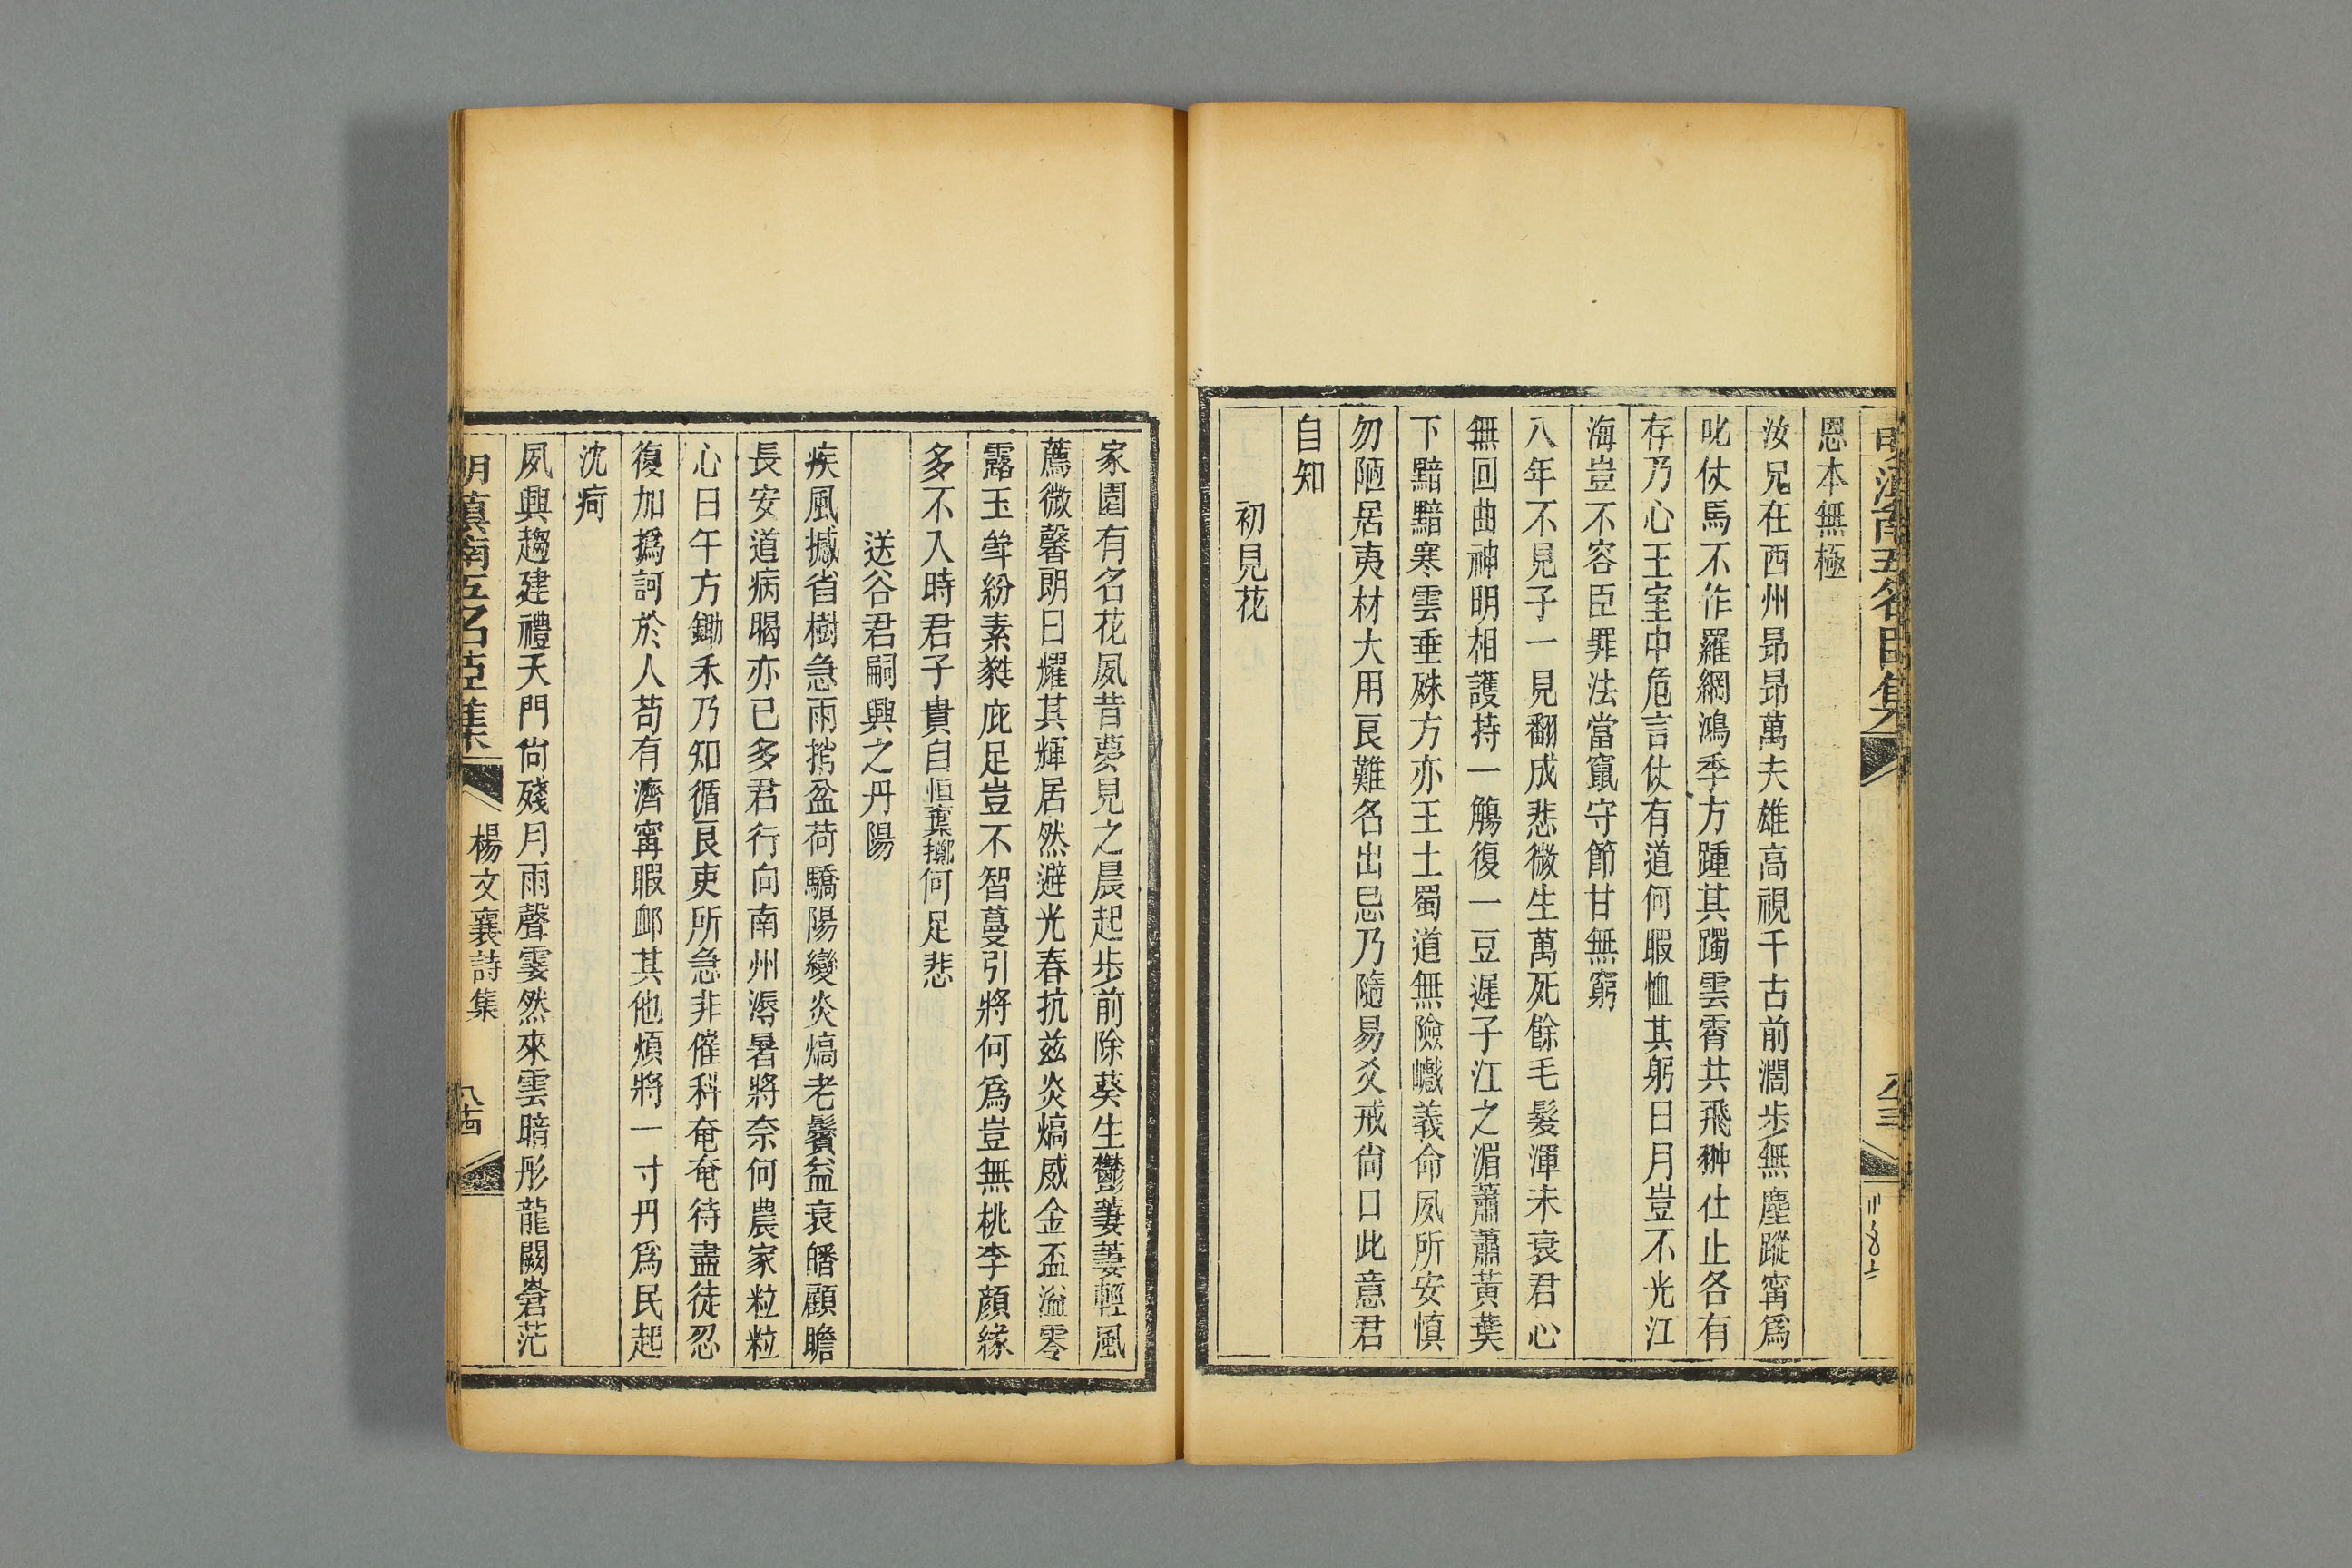 明滇南五名臣集
八十三
恩本無極
汝兄在西州昂昂萬夫雄高視千古前濶步無塵蹤寗爲
叱仗馬不作羅網鴻季方踵其躅雲霄共飛翀仕止各有
存乃心王室中危言仗有道何暇恤其躬日月豈不光江
海豈不容臣罪法當竄守節甘無窮
八年不見子一見翻成悲微生萬死餘毛髮渾未衰君心
無回曲神明相護持一觴復一豆遲子江之湄蕭蕭黃葉
下黯黯寒雲垂殊方亦王土蜀道無險巇義命夙所安慎
勿陋居夷材大用良難名出忌乃隨易爻戒尙口此意君
自知
初見花
家園有名花夙昔夢見之晨起步前除葵生鬱萋萋輕風
薦微馨朗日耀其輝居然避光春抗兹炎熇威金盃溢零
露玉牟紛素㽔庇足豈不智蔓引將何爲豈無桃李顏緣
多不入時君子貴自恒棄擲何足悲
送谷君嗣興之丹陽
疾風撼省樹急雨揹盆荷驕陽變炎熇老鬢益衰皤顧瞻
長安道病暍亦已多君行向南州溽暑將奈何農家粒粒
心日午方鋤禾乃知循良吏所急非催科奄奄待盡徒忍
復加撝訶於人苟有濟寗暇邮其他煩將一寸丹爲民起
沈疴
夙興趨建禮天門尙殘月雨聲霎然來雲暗彤龍闕蒼茫
明滇南五名臣集
楊文襄詩集
八十四